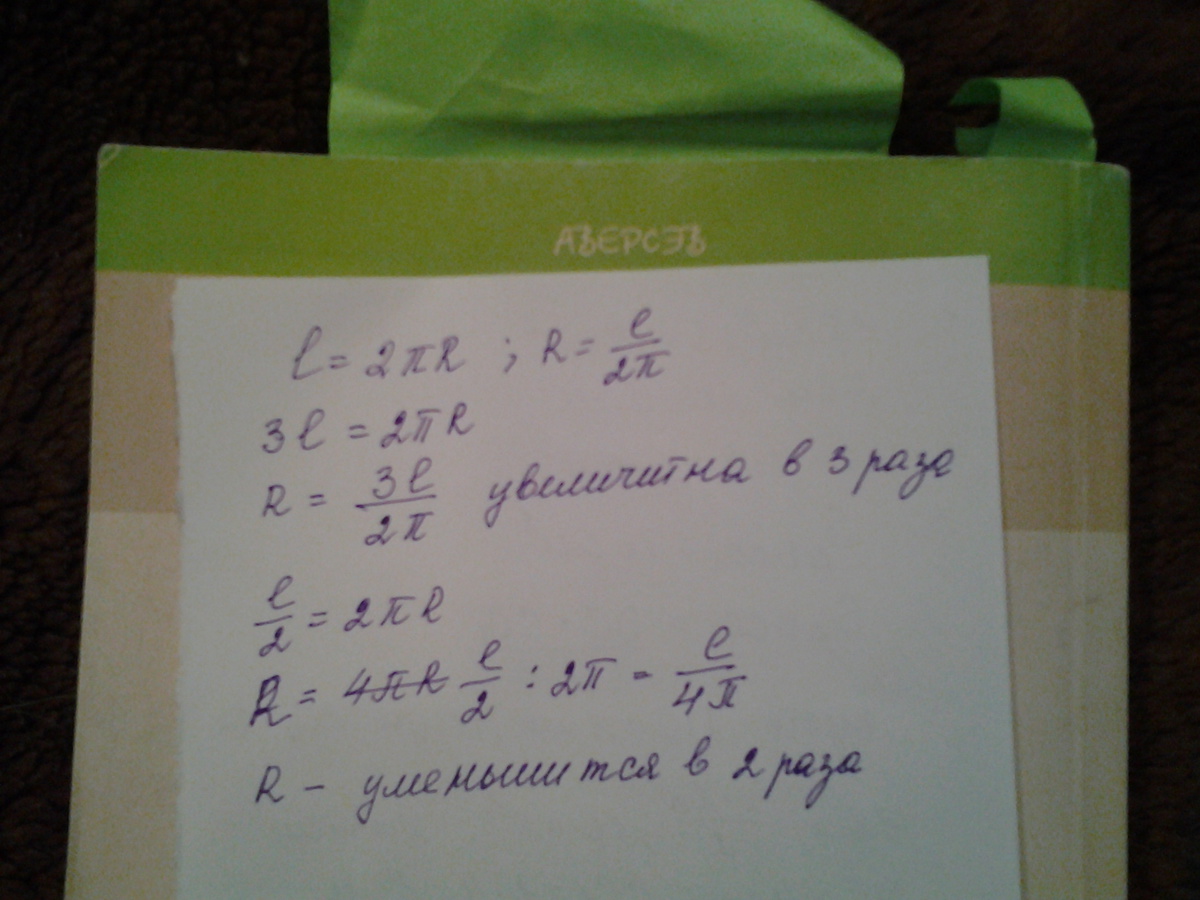 АВЕРСЭВ
l = 2πR ; R = l/2π
3l = 2πR
R = 3l/2π увеличитна в 3 раза
l/2 = 2πR
R = 4πR l/2 : 2π = l/4π
R – уменьшится в 2 раза